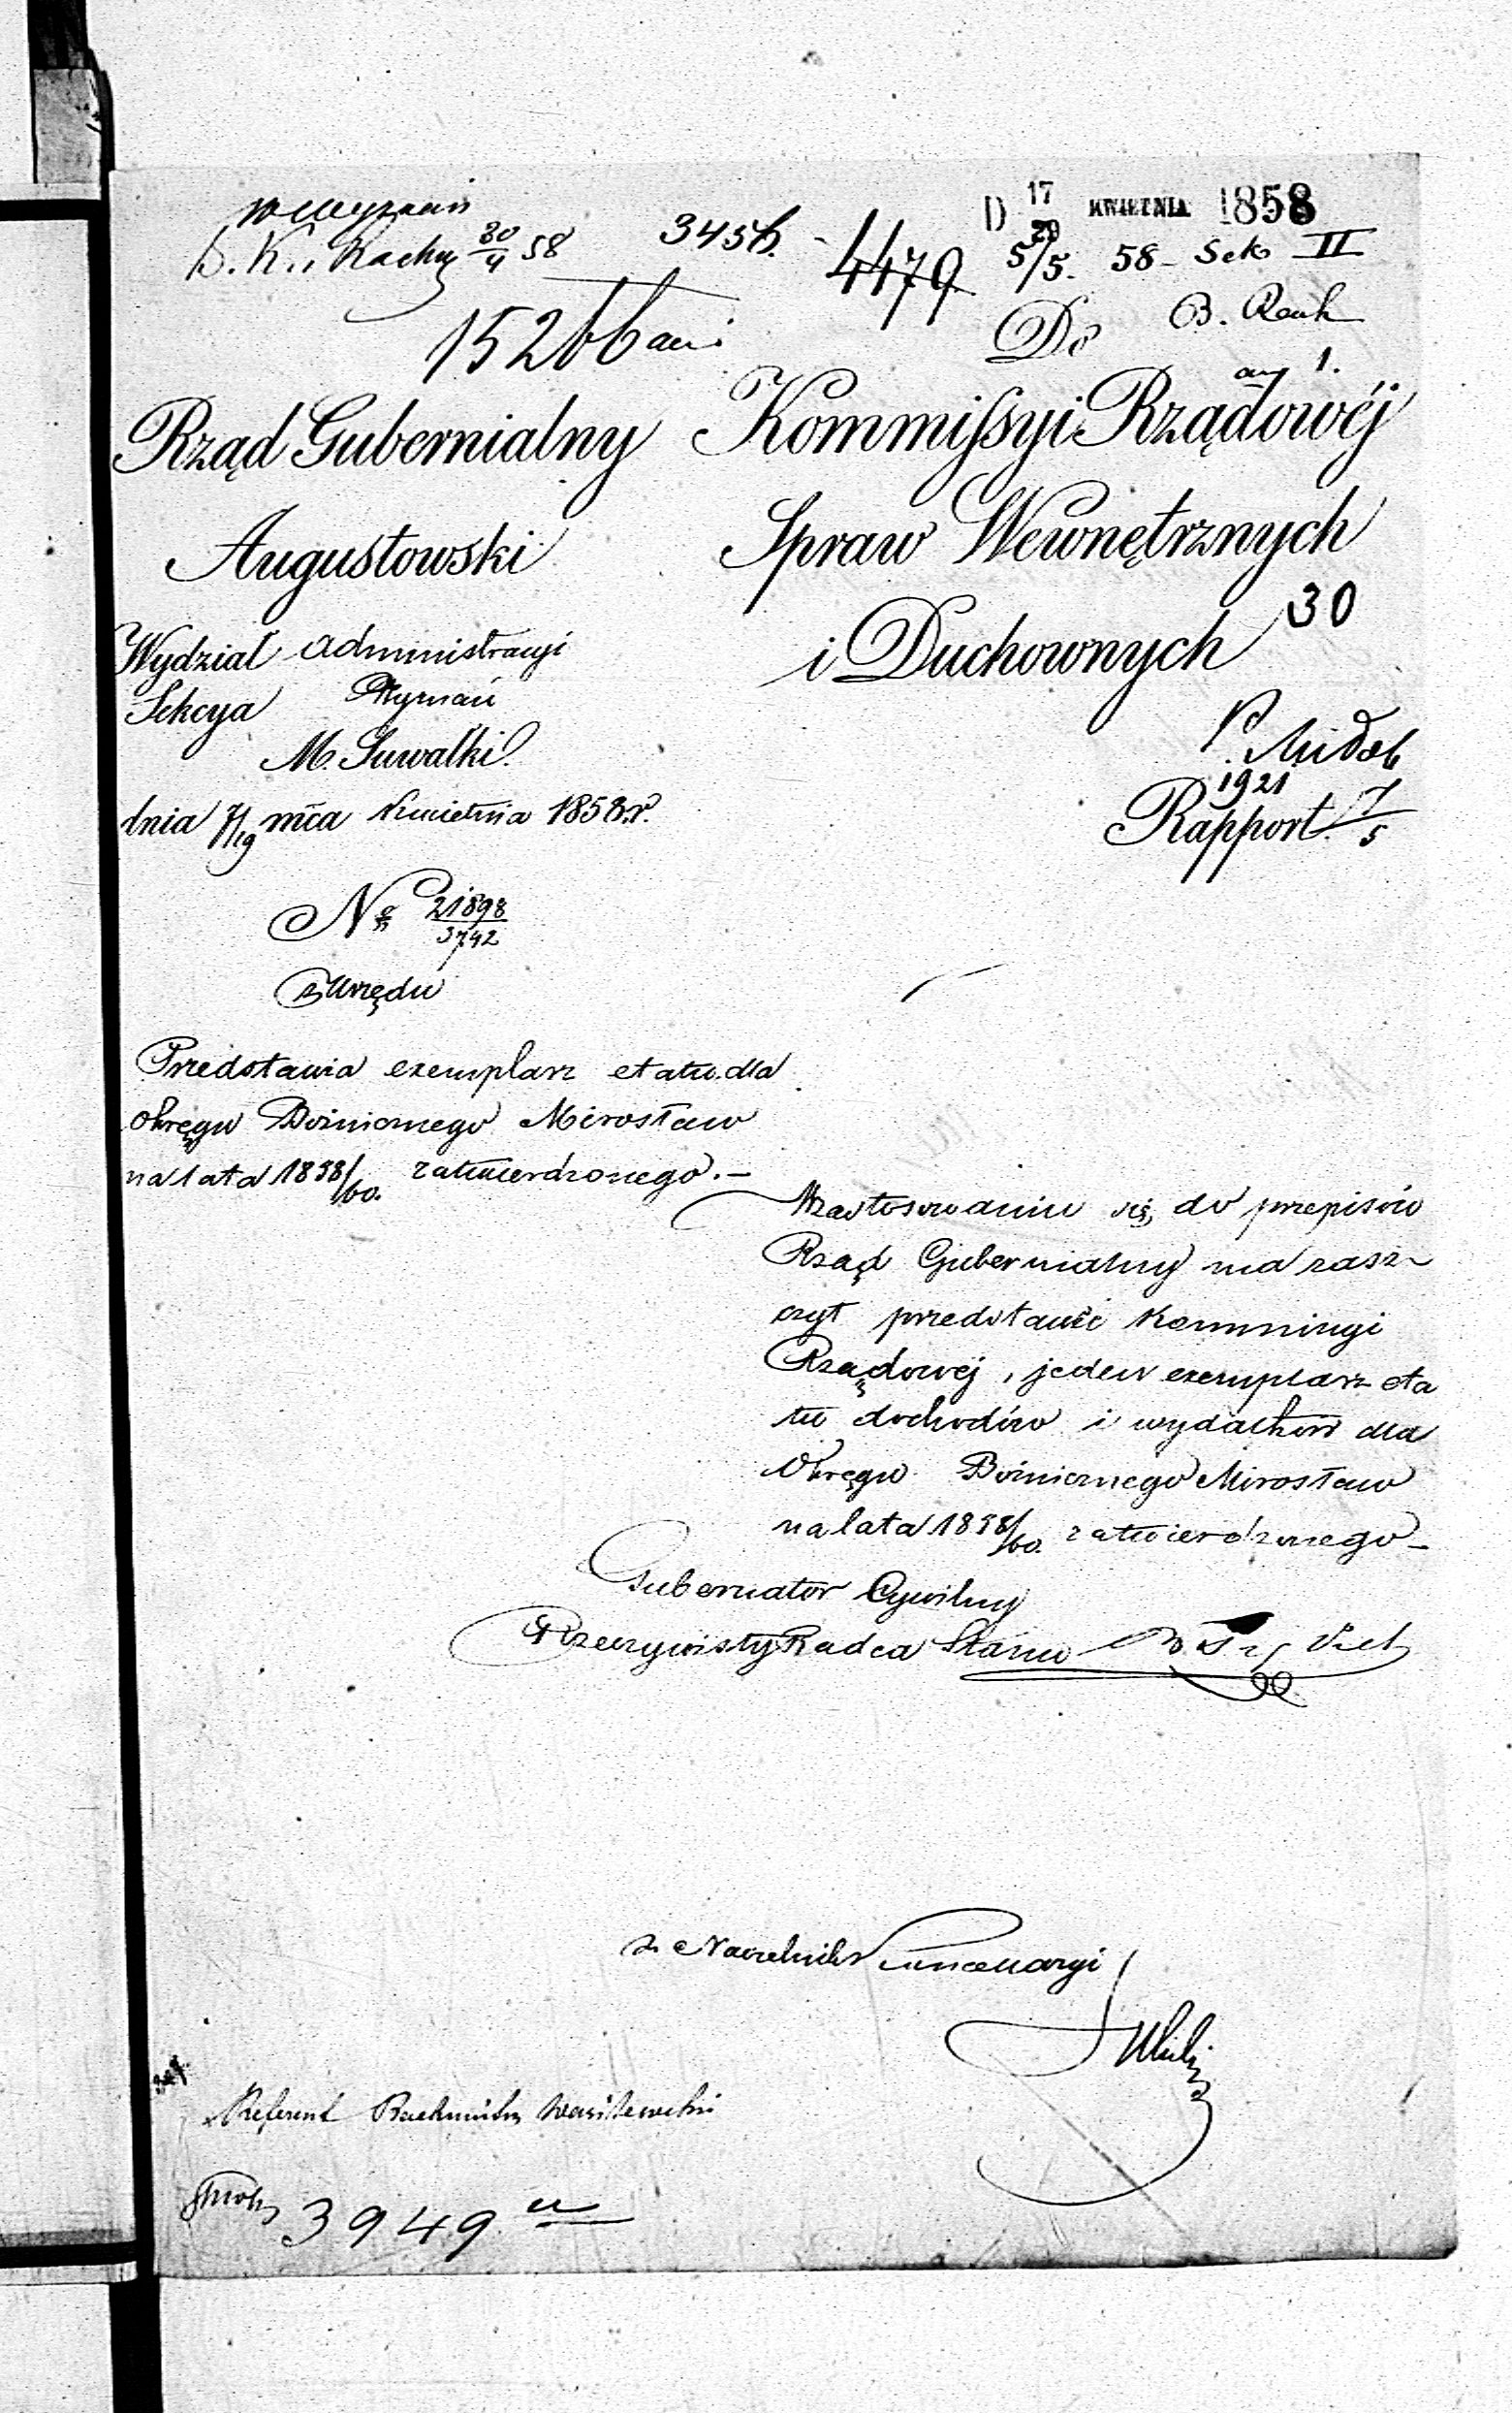 D 17/29 KWIETNIA 1858
B. K. i Rachy 30/4 58
3456.
4479
5/5. 58 - Sek II
B. Rach
15266
Do
Rząd Gubernialny
Augustowski
Kommissyi Rządowéj
Spraw Wewnętrznych
i Duchownych
30
Wydział Administracyi
Sekcya Wyznań
M. Suwałki.
dnia 7/19 mca Kwietnia 1858 r.
1921
Rapport. 7/5
No 21898/3742
z Urzędu
Przedstawia exemplarz etatu dla
okręgu Bożnicznego Mirosław
na lata 1858/60. zatwierdzonego. -
W zastosowaniu się do przepisów
Rząd Gubernialny ma zasz-
czyt przedstawić Kommissyi
Rządowéj, jeden exemplarz eta
tu dochodów i wydatków dla
Okręgu Bożnicznego Mirosław
na lata 1858/60. zatwierdzonego -
Gubernator Cywilny
Rzeczywisty Radca Stanu
z. Naczelnik Kancellaryi
Referent
3949